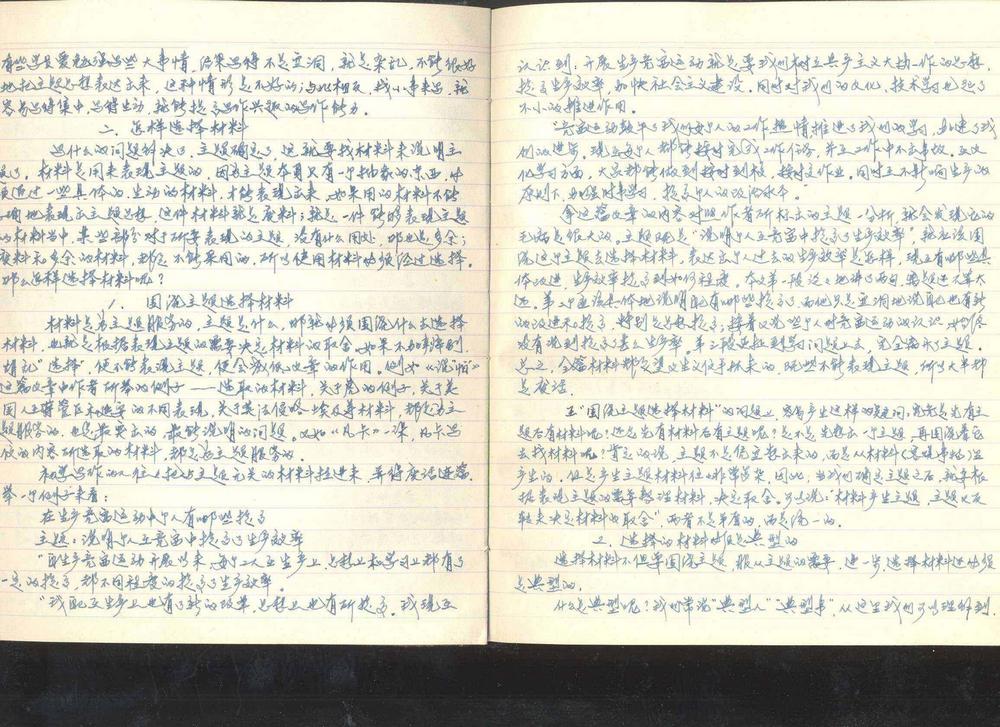 有些学员爱勉强写些大事情,结果写得不是空洞,就是杂乱,不能很好
地把主题思想表达出来,这种情形是不好的;与此相反,找小事来写,就
容易写得集中,写得生动,就能提高写作兴趣和写作能力。
二、怎样选择材料
写什么的问题解决了,主题确定了,这就要找材料来说明主
题了。材料是用来表现主题的,因为主题本身只有一个抽象的东西,必
须通过一些具体的、生动的材料,才能表现出来。如果用的材料不能
明确地表现出主题思想,这件材料就是废料;就是一件能够表现主题
的材料当中,某些部分对于所要表现的主题,没有什么用处,那也是多余;
废料和多余的材料,都是不能采用的,所以使用材料必须经过选择。
那么怎样选择材料呢?
1. 围绕主题选择材料
材料是为主题服务的,主题是什么,那就必须围绕什么去选择
材料,也就是根据表现主题的需要决定材料的取舍。如果不加
选择,便不能表现主题,便会减低文章的作用。例如
这篇文章中作者所举的例子——选取的材料,关于虎的例子,关于美
国人
题服务的,也是最突出的,最能说明问题的。又如"凡卡"一课,凡卡写
信的内容所选取的材料,都是为主题服务的。
初学写作的人往往把与主题无关的材料拉进来,弄得废话连篇。
举一个例子来看:
在生产竞赛运动中个人有哪些提高
主题:说明个人在竞赛中提高了生产效率
"自生产竞赛运动开展以来,每个工人在生产上、思想上和学习上都有了
一定的提高,都不同程度的提高了生产效率。
"我自己在生产上也有了新的改革,思想上也有所提高。我现在
认识到:开展生产竞赛运动就是要我们树立共产主义大协作的思想,
提高生产效率,加快社会主义建设。同时对我们的文化、技术学习也起了
不小的推进作用。
"竞赛运动鼓午了我们每个人的工作热情,推进了我们的学习,加速了我
们的进步。现在每个人都能按时完成工作任务,并在工作中不出事故。在文
化学习方面,大家都能做到按时到校,按时交作业。同时在不影响生产的
原则下,加强时事学习,提高个人的政治水平。"
拿这篇文章的内容对照作者所标出的主题一分析,就会发现它的
毛病是很大的。主题既是"说明个人在竞赛中提高了生产效率",就应该围
绕这个主题去选择材料,表达出个人过去的生产效率是怎样,现在有哪些具
体改进,生产效率提高到如何程度。
还。第二个应该具体地说明自己有哪些提高,而他只是空洞地说自己也有新
的改进和提高,特别是思想提高;接着又说些个人对竞赛运动的认识,
没有说到提高了怎么生产率。第三段更扯到学习问题上去,完全离开了主题。
总之,全篇材料
是废话。
在"围绕主题选择材料"的问题上,容易产生这样的疑问:究竟是先有主
题后有材料呢?还是先有材料后有主题呢?是不是先想出一个主题,再围绕着它
去找材料呢?肯定的说,主题不是凭空想出来的,而是从材料(客观事物)中
产生的。但是产生主题材料往往非常繁杂,因此,当我们确定主题之后,就要根
据表现主题的需要整理材料,决定取舍。可以说:"材料产生主题,主题又反
转来决定材料的取舍",两者不是矛盾的,而是统一的。
2. 选择的材料必须是典型的
选择材料不但要围绕主题,服从主题的需要,进一步,选择材料还必须
是典型的。
什么是典型呢?我们常说"典型人""典型事",从这里我们可以理解到: